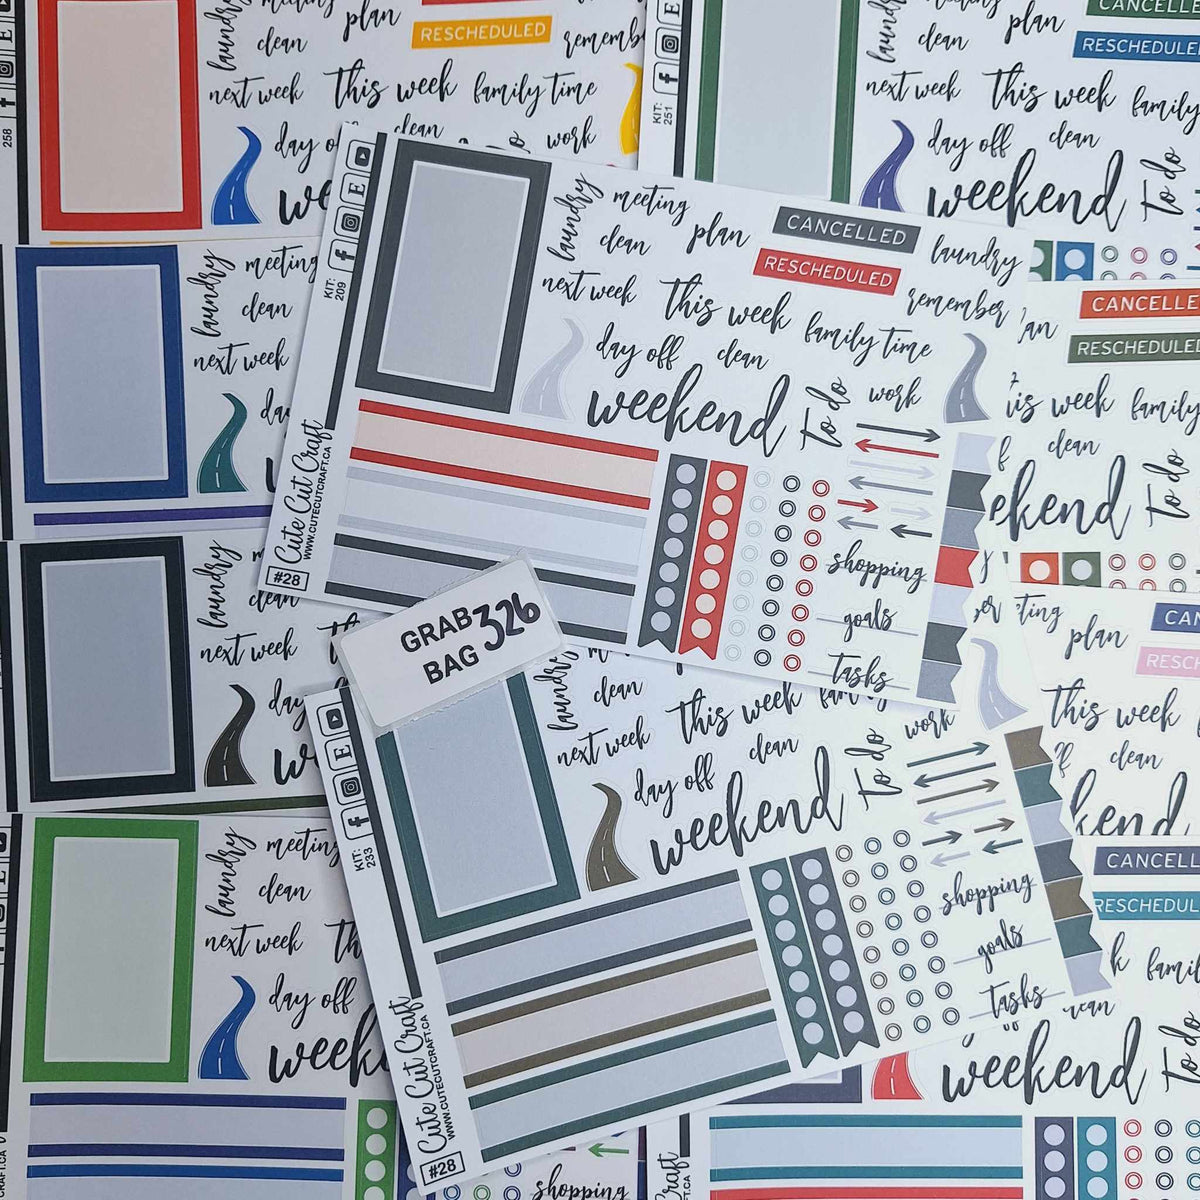 258
laundry
meeting
clean
plan
RESCHEDULED
next week
this week
family time
day
clean
work
KIT:
251
laundry
clean
plan
RESCHEDULED
next week
this week
family
day off
clean
weekend
to do
KIT:
209
laundry
meeting
clean
plan
CANCELLED
RESCHEDULED
laundry
remember
next week
this week
family time
day off
clean
weekend
to do
work
shopping
goals
tasks
Cute Cut Craft
WWW.CUTECUTCRAFT.CA
#28
GRAB
BAG
326
KIT:
233
laundry
clean
next week
this week
day off
clean
weekend
to do
work
shopping
goals
tasks
Cute Cut Craft
WWW.CUTECUTCRAFT.CA
#28
laundry
meeting
clean
next week
laundry
clean
next week
laundry
meeting
clean
next week
day off
shopping
RESCHEDULED
week
family
clean
to do
plan
this week
clean
weekend
to do